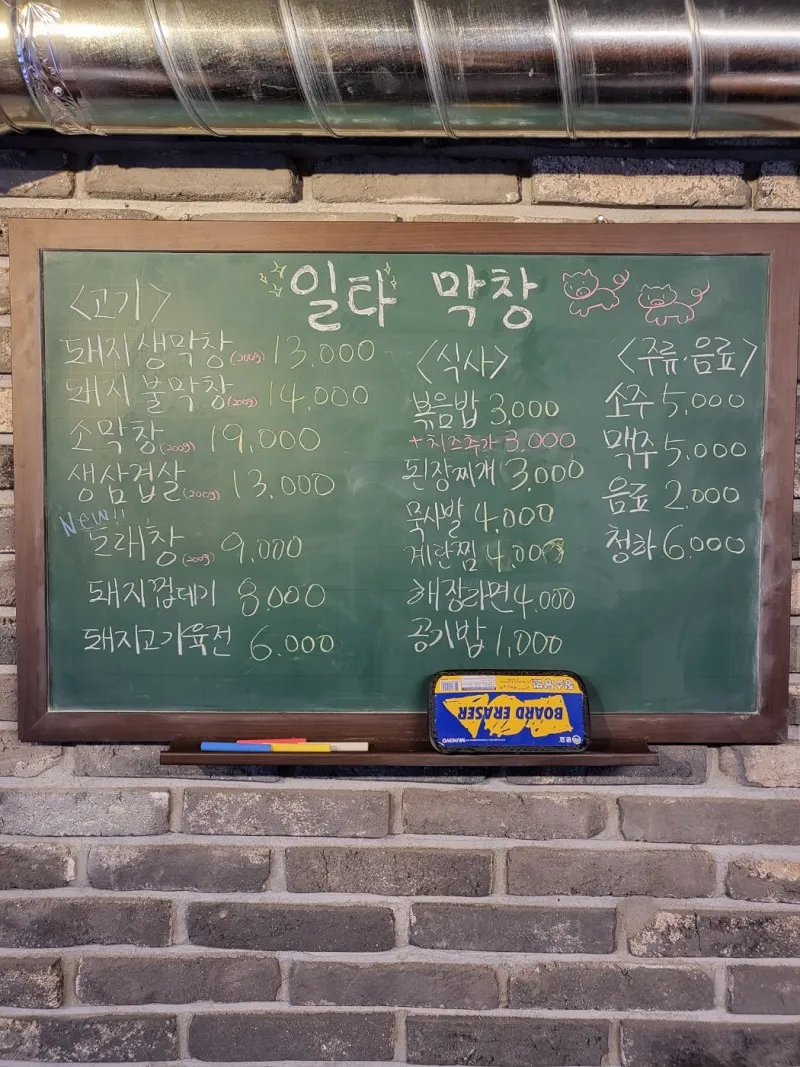 일타 막창
<고기>
돼지생막창(200g) 13.000
돼지불막창(200g) 14.000
소막창(200g) 19,000
생삼겹살(200g) 13.000
New!!
도래창(200g) 9.000
돼지껍데기 8.000
돼지고기육전 6.000
<식사>
볶음밥 3,000
+치즈추가 3.000
된장찌개 3,000
묵사발 4.000
계란찜 4,000
해장라면 4,000
공기밥 1,000
<주류·음료>
소주 5,000
맥주 5,000
음료 2.000
청하 6.000
BOARD ERASER
MUNGYO